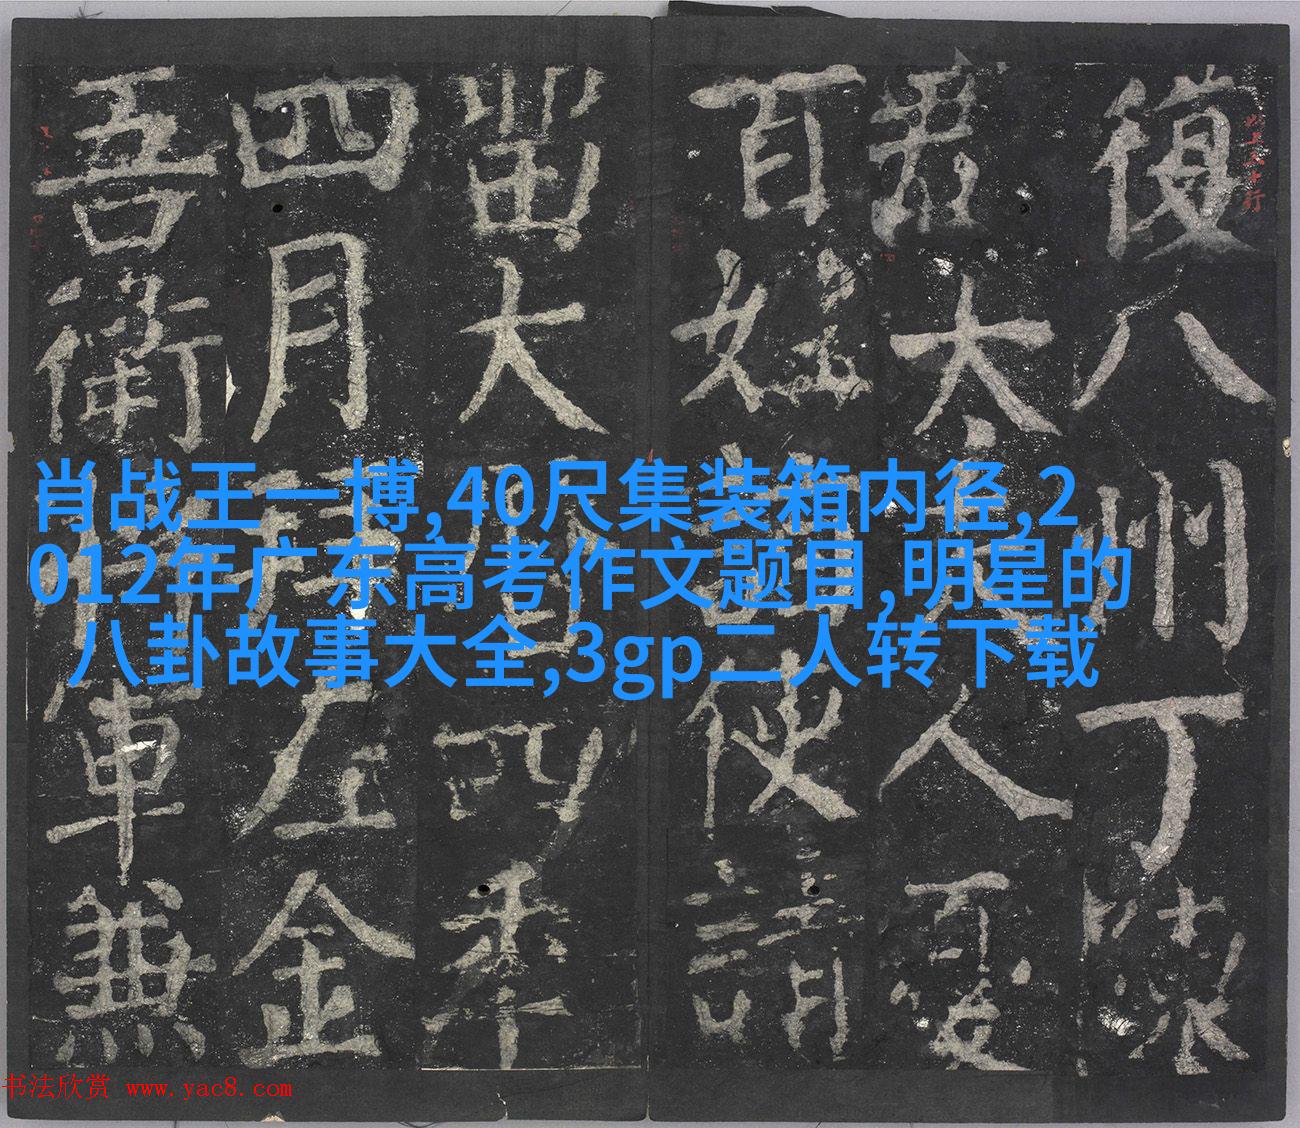 復八州丁陳
君太人憂
百姓使請
留大四年
四月拜左金
吾衛軍兼
肖战王一博,40尺集装箱内径,2
012年广东高考作文题目,明星的
八卦故事大全,3gp二人转下载
书法欣赏 www.yac8.com